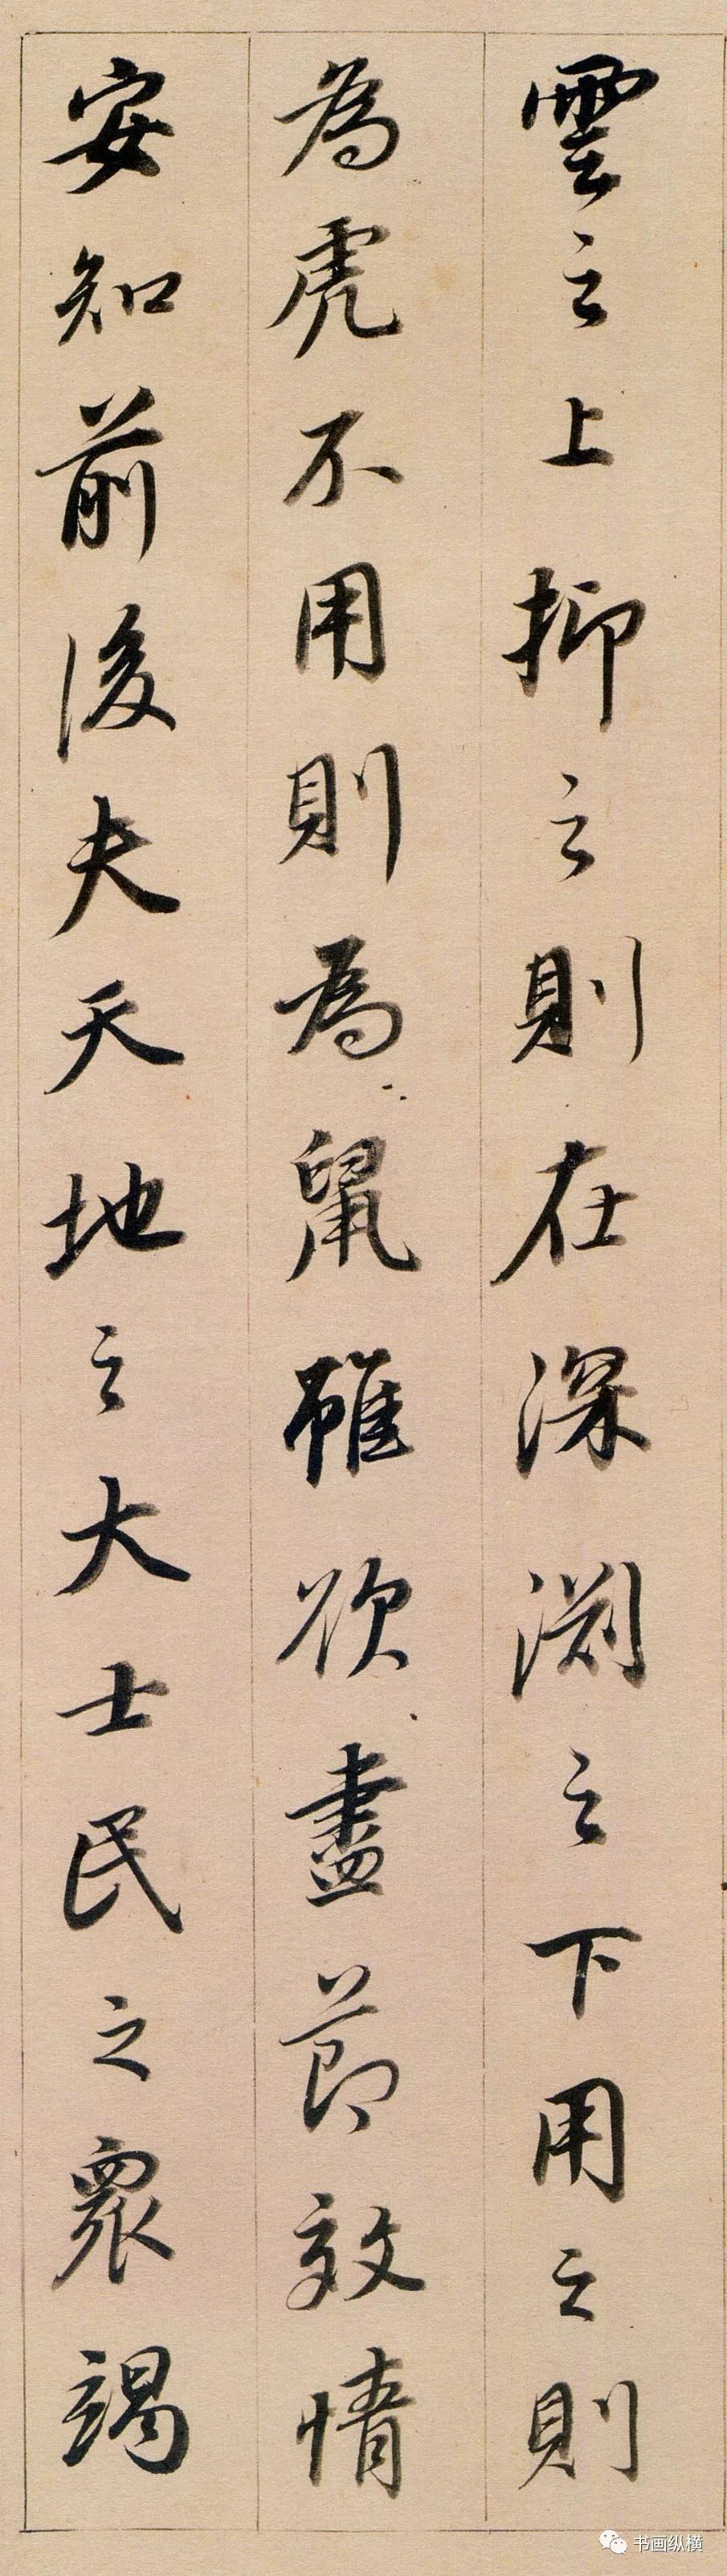 雲之上抑之則在深淵之下用之則
為虎不用則為鼠雖欲盡節效情
安知前後夫天地之大士民之眾竭
书画纵横